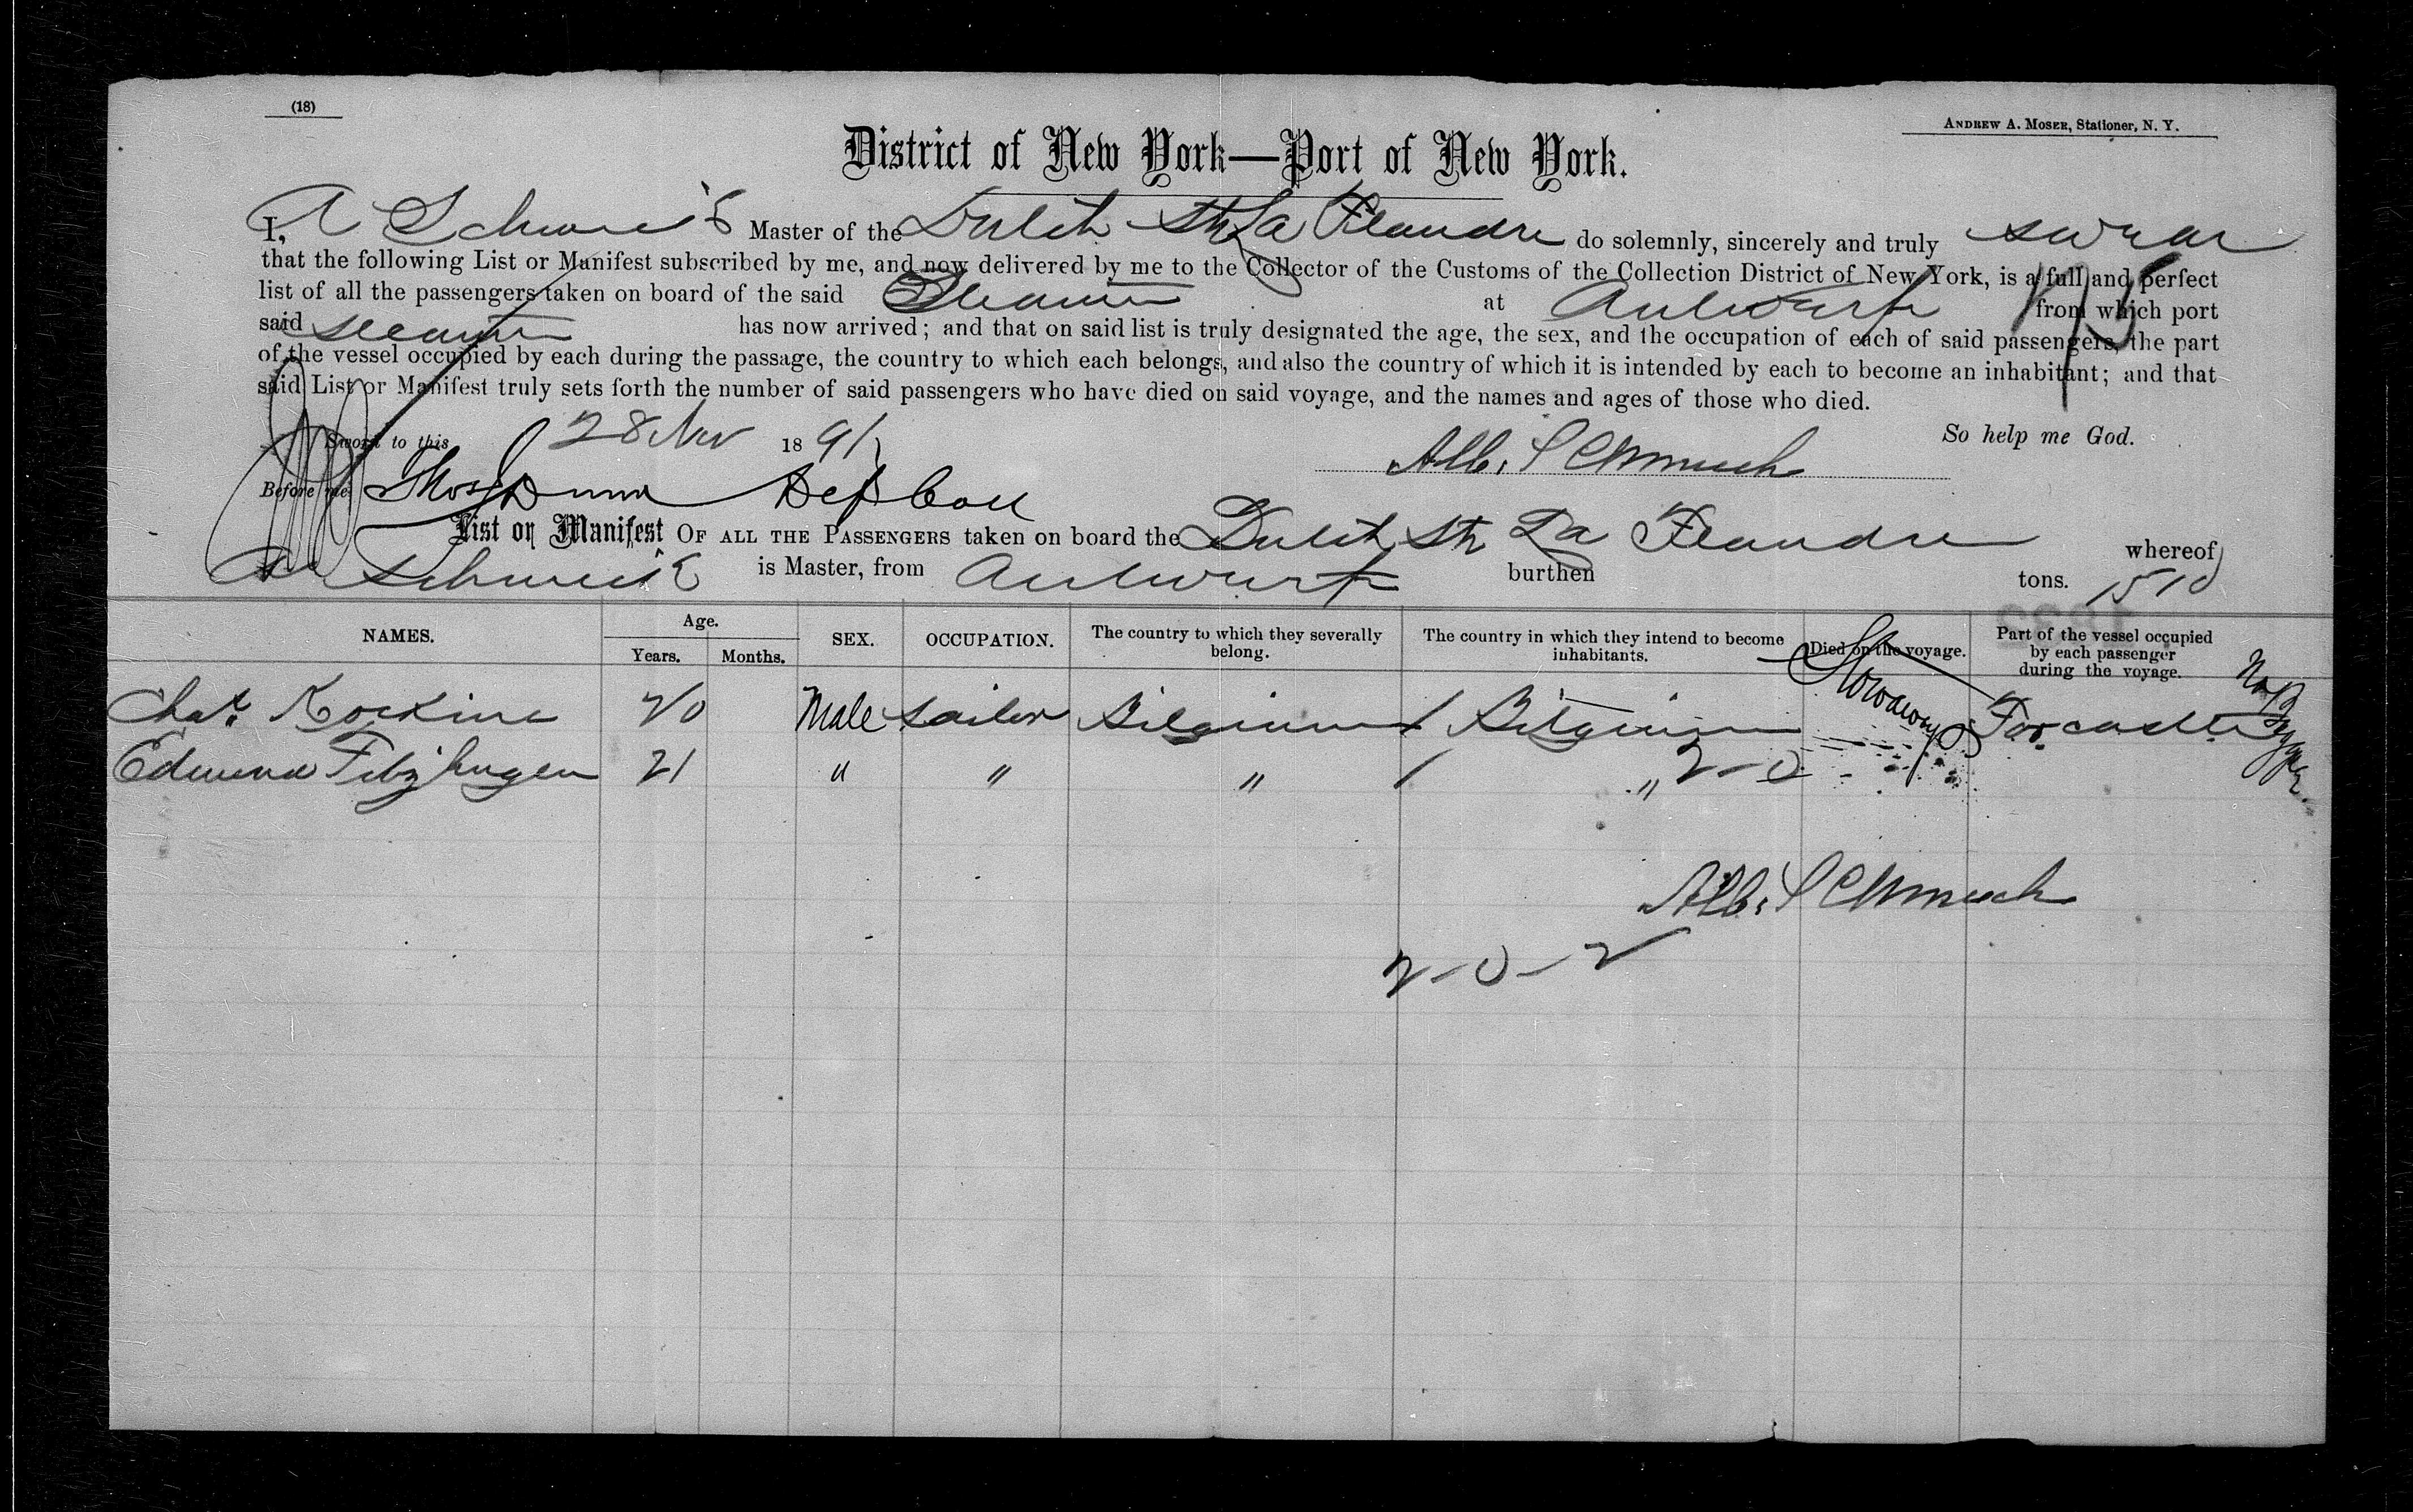 (18)
ANDREW A. MOSER, Stationer, N. Y.
District of New York—Port of New York.
I, A Master of the Dutch Str La Flandre do solemnly, sincerely and truly swear
that the following List or Manifest subscribed by me, and now delivered by me to the Collector of the Customs of the Collection District of New York, is a full and perfect
list of all the passengers taken on board of the said Steamer at Antwerp from which port
said steamer has now arrived; and that on said list is truly designated the age, the sex, and the occupation of each of said passengers, the part
of the vessel occupied by each during the passage, the country to which each belongs, and also the country of which it is intended by each to become an inhabitant; and that
said List or Manifest truly sets forth the number of said passengers who have died on said voyage, and the names and ages of those who died.
So help me God.
Sworn to this 28 Nov 1891
Before me Dep Coll
List or Manifest OF ALL THE PASSENGERS taken on board the Dutch Str La Flandre whereof
A is Master, from Antwerp burthen tons. 1510
NAMES. Age. Years. Months. SEX. OCCUPATION. The country to which they severally belong. The country in which they intend to become inhabitants. Died on the voyage. Part of the vessel occupied by each passenger during the voyage.
20 Male Sailor Belgium / Belgium Stowaways Forcastle
21 " " " / " 2-0
2-0-2